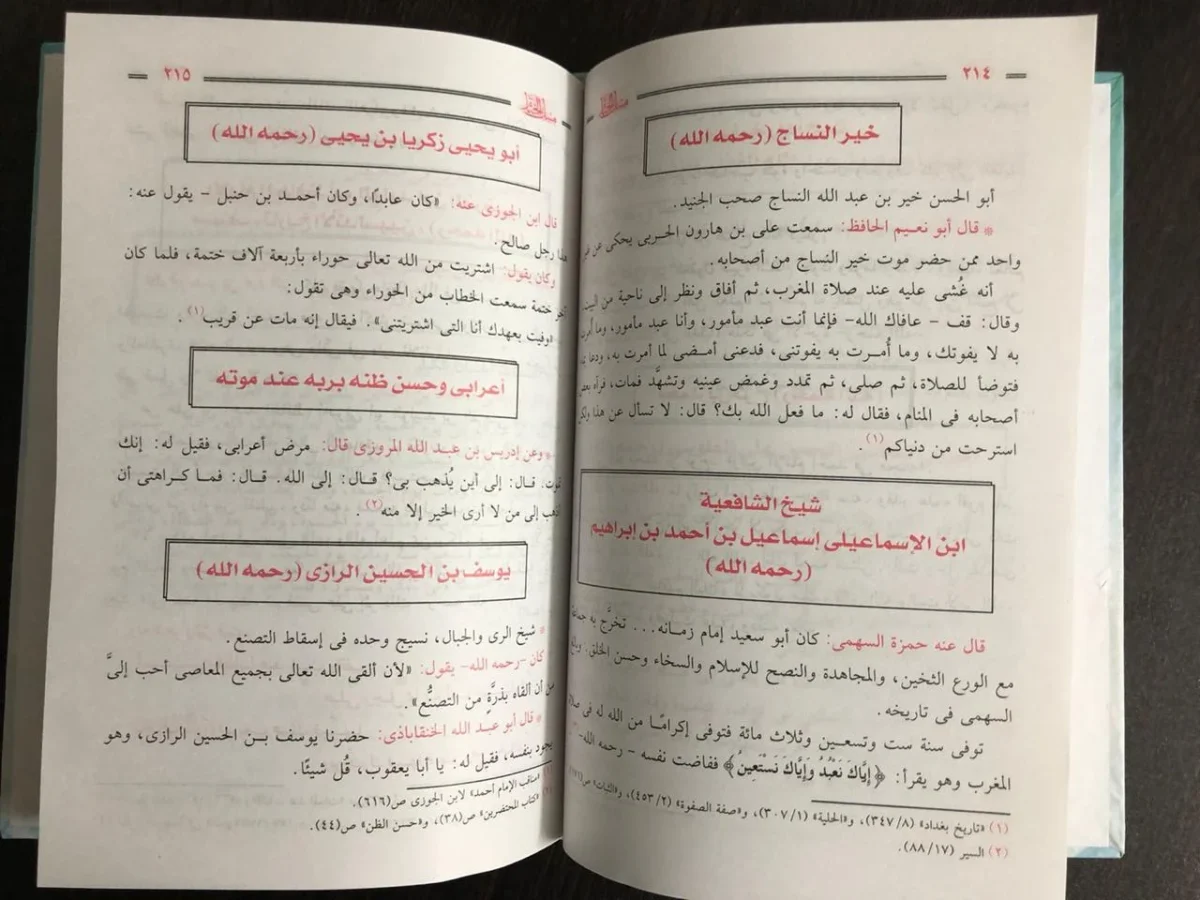 ٢١٤
خير النساج (رحمه الله)
أبو الحسن خير بن عبد الله النساج صحب الجنيد.
* قال أبو نعيم الحافظ: سمعت على بن هارون الحربى يحكى عن غير
واحد ممن حضر موت خير النساج من أصحابه.
أنه غُشى عليه عند صلاة المغرب، ثم أفاق ونظر إلى ناحية من البيت
وقال: قف - عافاك الله- فإنما أنت عبد مأمور، وأنا عبد مأمور، وما أُمرت
به لا يفوتك، وما أُمـرت به يفوتنى، فدعنى أمـضى لما أمرت به، ودعا بماء
فتوضأ للصلاة، ثم صلى، ثم تمدد وغمض عينيه وتشهَّد فمات، فرآه بعض
أصحابه فى المنام، فقال له: ما فعل الله بك؟ قال: لا تسأل عن هذا ولكن
استرحت من دنياكم(١).
شيخ الشافعية
ابن الإسماعيلى إسماعيل بن أحمد بن إبراهيم
(رحمه الله)
قال عنه حمزة السهمى: كان أبو سعيد إمام زمـانه... تخرَّج به جماعة
مع الورع الثخين، والمجاهدة والنصح للإسلام والسخاء وحسن الخلق.
السهمى فى تاريخه.
توفى سنة ست وتسعـين وثلاث مائة فتوفى إكرامًـا من الله له فى صلاة
المغرب وهو يقرأ: ﴿إِيَّاكَ نَعْبُدُ وَإِيَّاكَ نَسْتَعِينُ﴾ ففاضت نفسه - رحمه الله-
(١) «تاريخ بغداد» (٣٤٧/٨)، و«الحلية» (٣٠٧/١)، و«صفة الصفوة» (٤٥٣/٢)، و«الثبات» ص
(٢) السير (٨٨/١٧).
٢١٥
أبو يحيى زكريا بن يحيى (رحمه الله)
قال ابن الجوزى عنه: «كان عابدًا، وكان أحمـد بن حنبل - يقول عنه:
هذا رجل صالح.
وكان يقول: اشتريت من الله تعالى حوراء بأربعة آلاف ختمة، فلما كان
آخر ختمة سمعت الخطاب من الحوراء وهى تقول:
«وفيت بعهدك أنا التى اشتريتنى». فيقال إنه مات عن قريب(١).
أعرابى وحسن ظنه بربه عند موته
* وعن إدريس بن عبـد الله المروزى قال: مرض أعرابى، فقيل له: إنك
تموت. قـال: إلى أين يُذهب بى؟ قـال: إلى الله. قـال: فمـا كـراهتى أن
أذهب إلى من لا أرى الخير إلا منه(٢).
يوسف بن الحسين الرازى (رحمه الله)
* شيخ الرى والجبال، نسيج وحده فى إسقاط التصنع.
كان -رحمه الله- يقول: «لأن ألقى الله تعالى بجميع المعاصى أحب إلىَّ
من أن ألقاه بذرَّةٍ من التصنُّع».
* قال أبو عبـد الله الخنقاباذى: حضرنا يوسف بـن الحسين الرازى، وهو
يجود بنفسه، فقيل له: يا أبا يعقوب، قُل شيئًا.
(١) «مناقب الإمام أحمد» لابن الجوزى ص(٦١٦).
(٢) «كتاب المحتضرين» ص(٣٨)، و«حسن الظن» ص(٤٤).